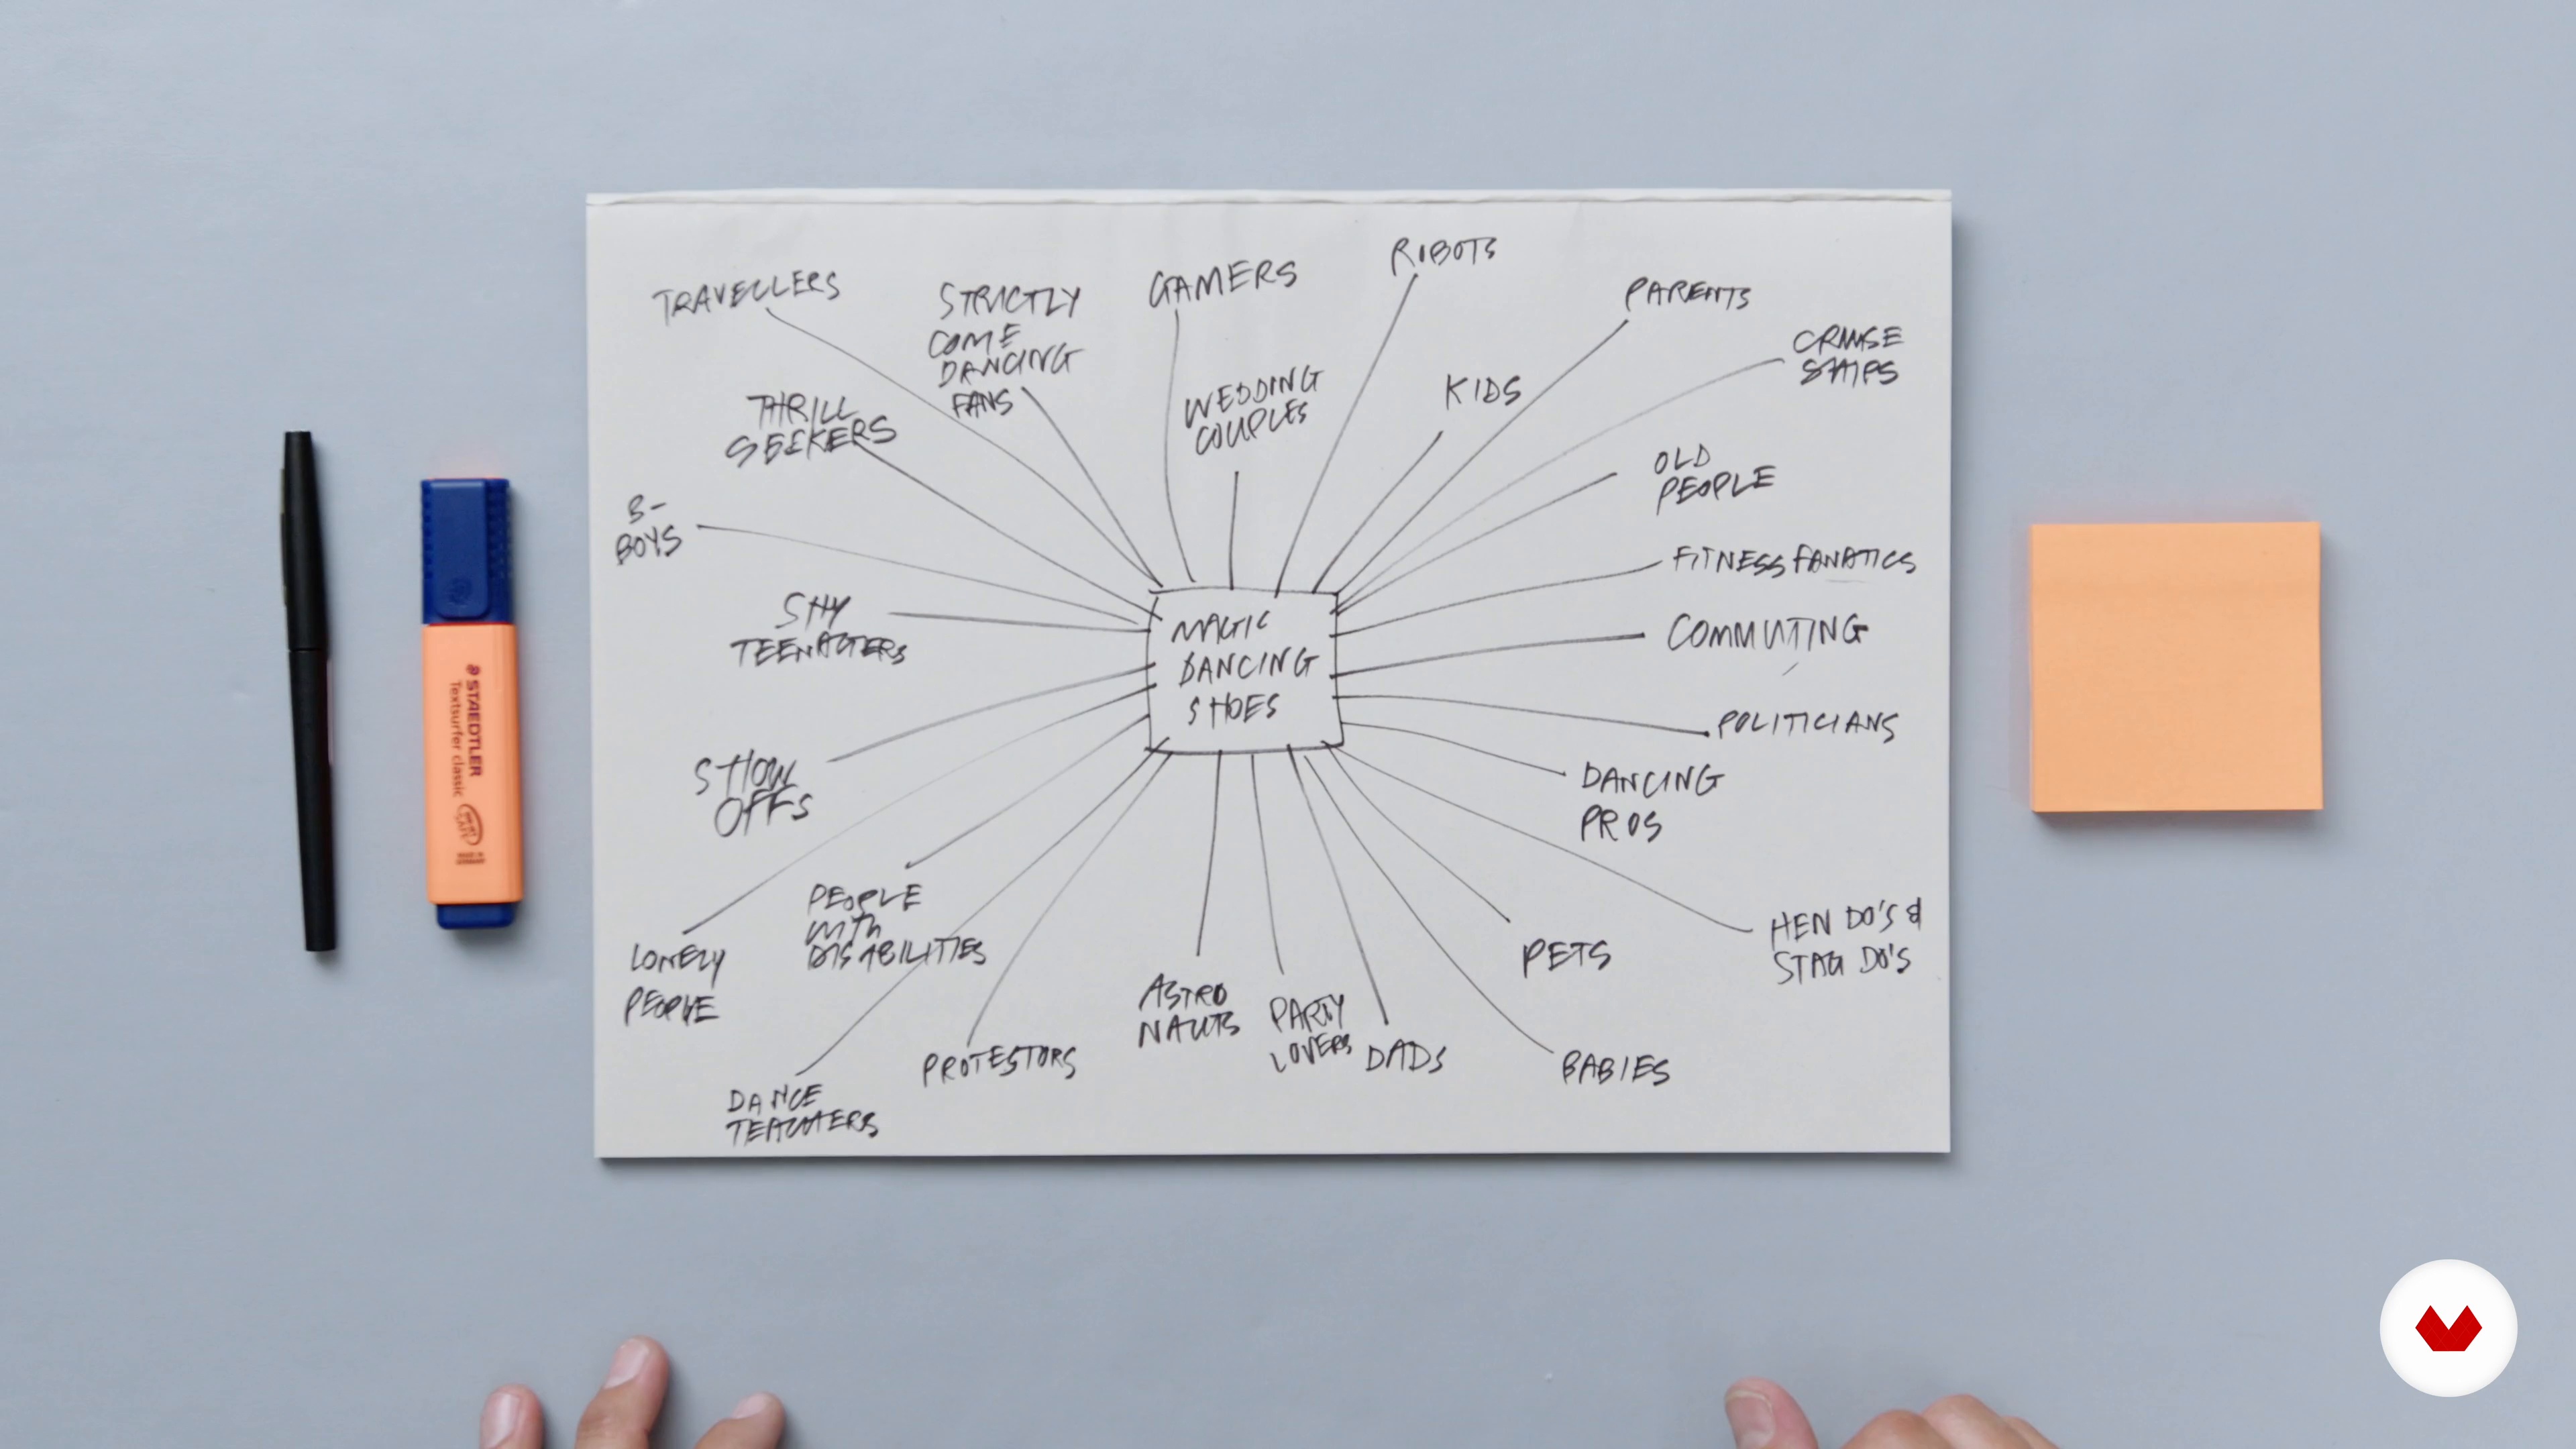 TRAVELLERS
STRICTLY
COME
DANCING
FANS
GAMERS
ROBOTS
PARENTS
CRUISE
SHIPS
THRILL
SEEKERS
WEDDING
COUPLES
KIDS
OLD
PEOPLE
B-
BOYS
FITNESS FANATICS
SHY
TEENAGERS
MAGIC
DANCING
SHOES
COMMUTING
POLITICIANS
SHOW
OFFS
DANCING
PROS
PEOPLE
WITH
DISABILITIES
LONELY
PEOPLE
HEN DO'S &
STAG DO'S
PETS
ASTRO
NAUTS
PARTY
LOVERS
DADS
PROTESTORS
BABIES
DANCE
TEACHERS
STAEDTLER
Textsurfer classic